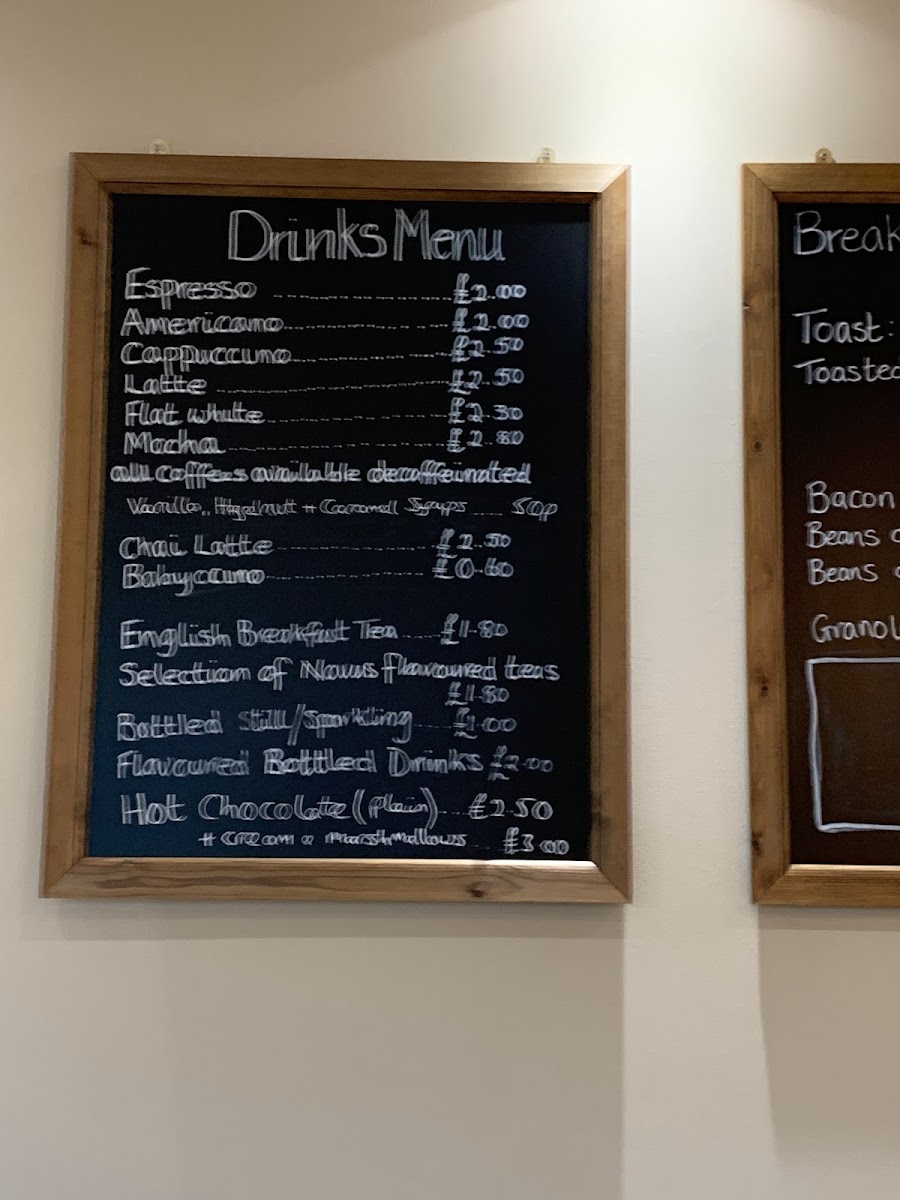 Drinks Menu
Espresso ........ £2.00
Americano ........ £2.00
Cappuccino ........ £2.50
Latte ........ £2.50
Flat white ........ £2.30
Mocha ........ £2.80
all coffees available decaffeinated
Vanilla, Hazelnut + Caramel Syrups ..... 50p
Chai Latte ........ £2.50
Babyccino ........ £0.60
English Breakfast Tea ..... £1.80
Selection of flavoured teas
£1.80
Bottled Still/Sparkling ..... £1.00
Flavoured Bottled Drinks £2.00
Hot Chocolate (plain) .... £2.50
+ cream + marshmallows ... £3.00
Break
Toast:
Toasted
Bacon
Beans
Beans
Granol